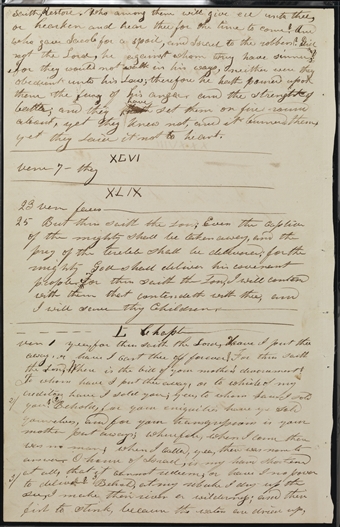 saith Restore. Who among them will give ear unto thee
or hearken and hear thee for the time to come? and
who gave Jacob for a spoil, and Israel to the robbers? Did
not the Lord, he against whom they have sinned?
For they would not walk in his ways, neither were they
obedient unto his law; therefore he hath poured upon
them the fury of his anger and the strength of
battle; and they have set them on fire round
about, yet they knew not, and it burned them
yet they laid it not to heart.
XLVI
verse 7 - they
XLIX
23 verse faces
25 But thus saith the Lord; Even the captives
of the mighty shall be taken away, and the
prey of the terrible shall be delivered; for the
mighty God shall deliver his covenant
people. For thus saith the Lord, I will contend
with them that contendeth with thee, and
I will save thy children.
L Chapt
vers 1 yea, for thus saith the Lord, have I put thee
away, or have I cast thee of forever? For thus saith
the Lord, Where is the bill of your mother's divorcement?
To whom have I put thee away, or to which of my
creditors have I sold you; yea, to whom have I sold
you? Behold, for your iniquities have ye sold
yourselves, and for your transgressions is your
mother put away; wherefore, when I came there
was no man; when I called, yea, there was none to
answer. O house of Israel, is my hand shortened
at all, that it cannot redeem, or have I no power
to deliver? Behold, at my rebuke I dry up the
sea, I make their rivers a wilderness, and their
fish to stink, because the waters are dried up,